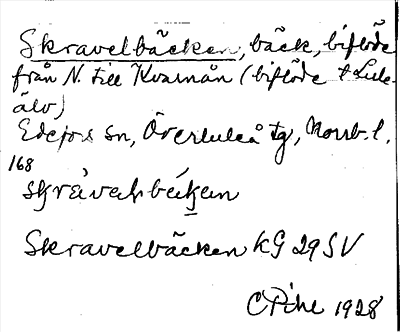 Skravelbäcken, bäck, biflöde
från N. till Kvarnån (biflöde t Lule-
älv)
Edefors sn, Överluleå tg, Norrb. l.
168
Skravelbäcken KG 29 SV
C Pihl 1928